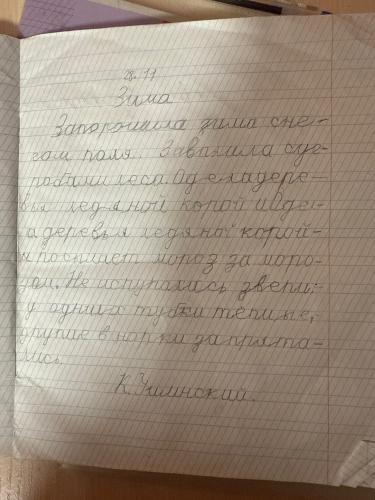 28. 11
Зима
Запорошила зима сне-
гом поля. Завалила суг-
робами леса. Одела дере-
вья ледяной корой и оде-
а деревья ледяной корой-
и посылает мороз за моро-
зом. Не испугались звери:
у одних шубки тёплые,
другие в норки запрята-
лись.
К. Ушинский.